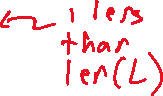 1 less
than
len(L)